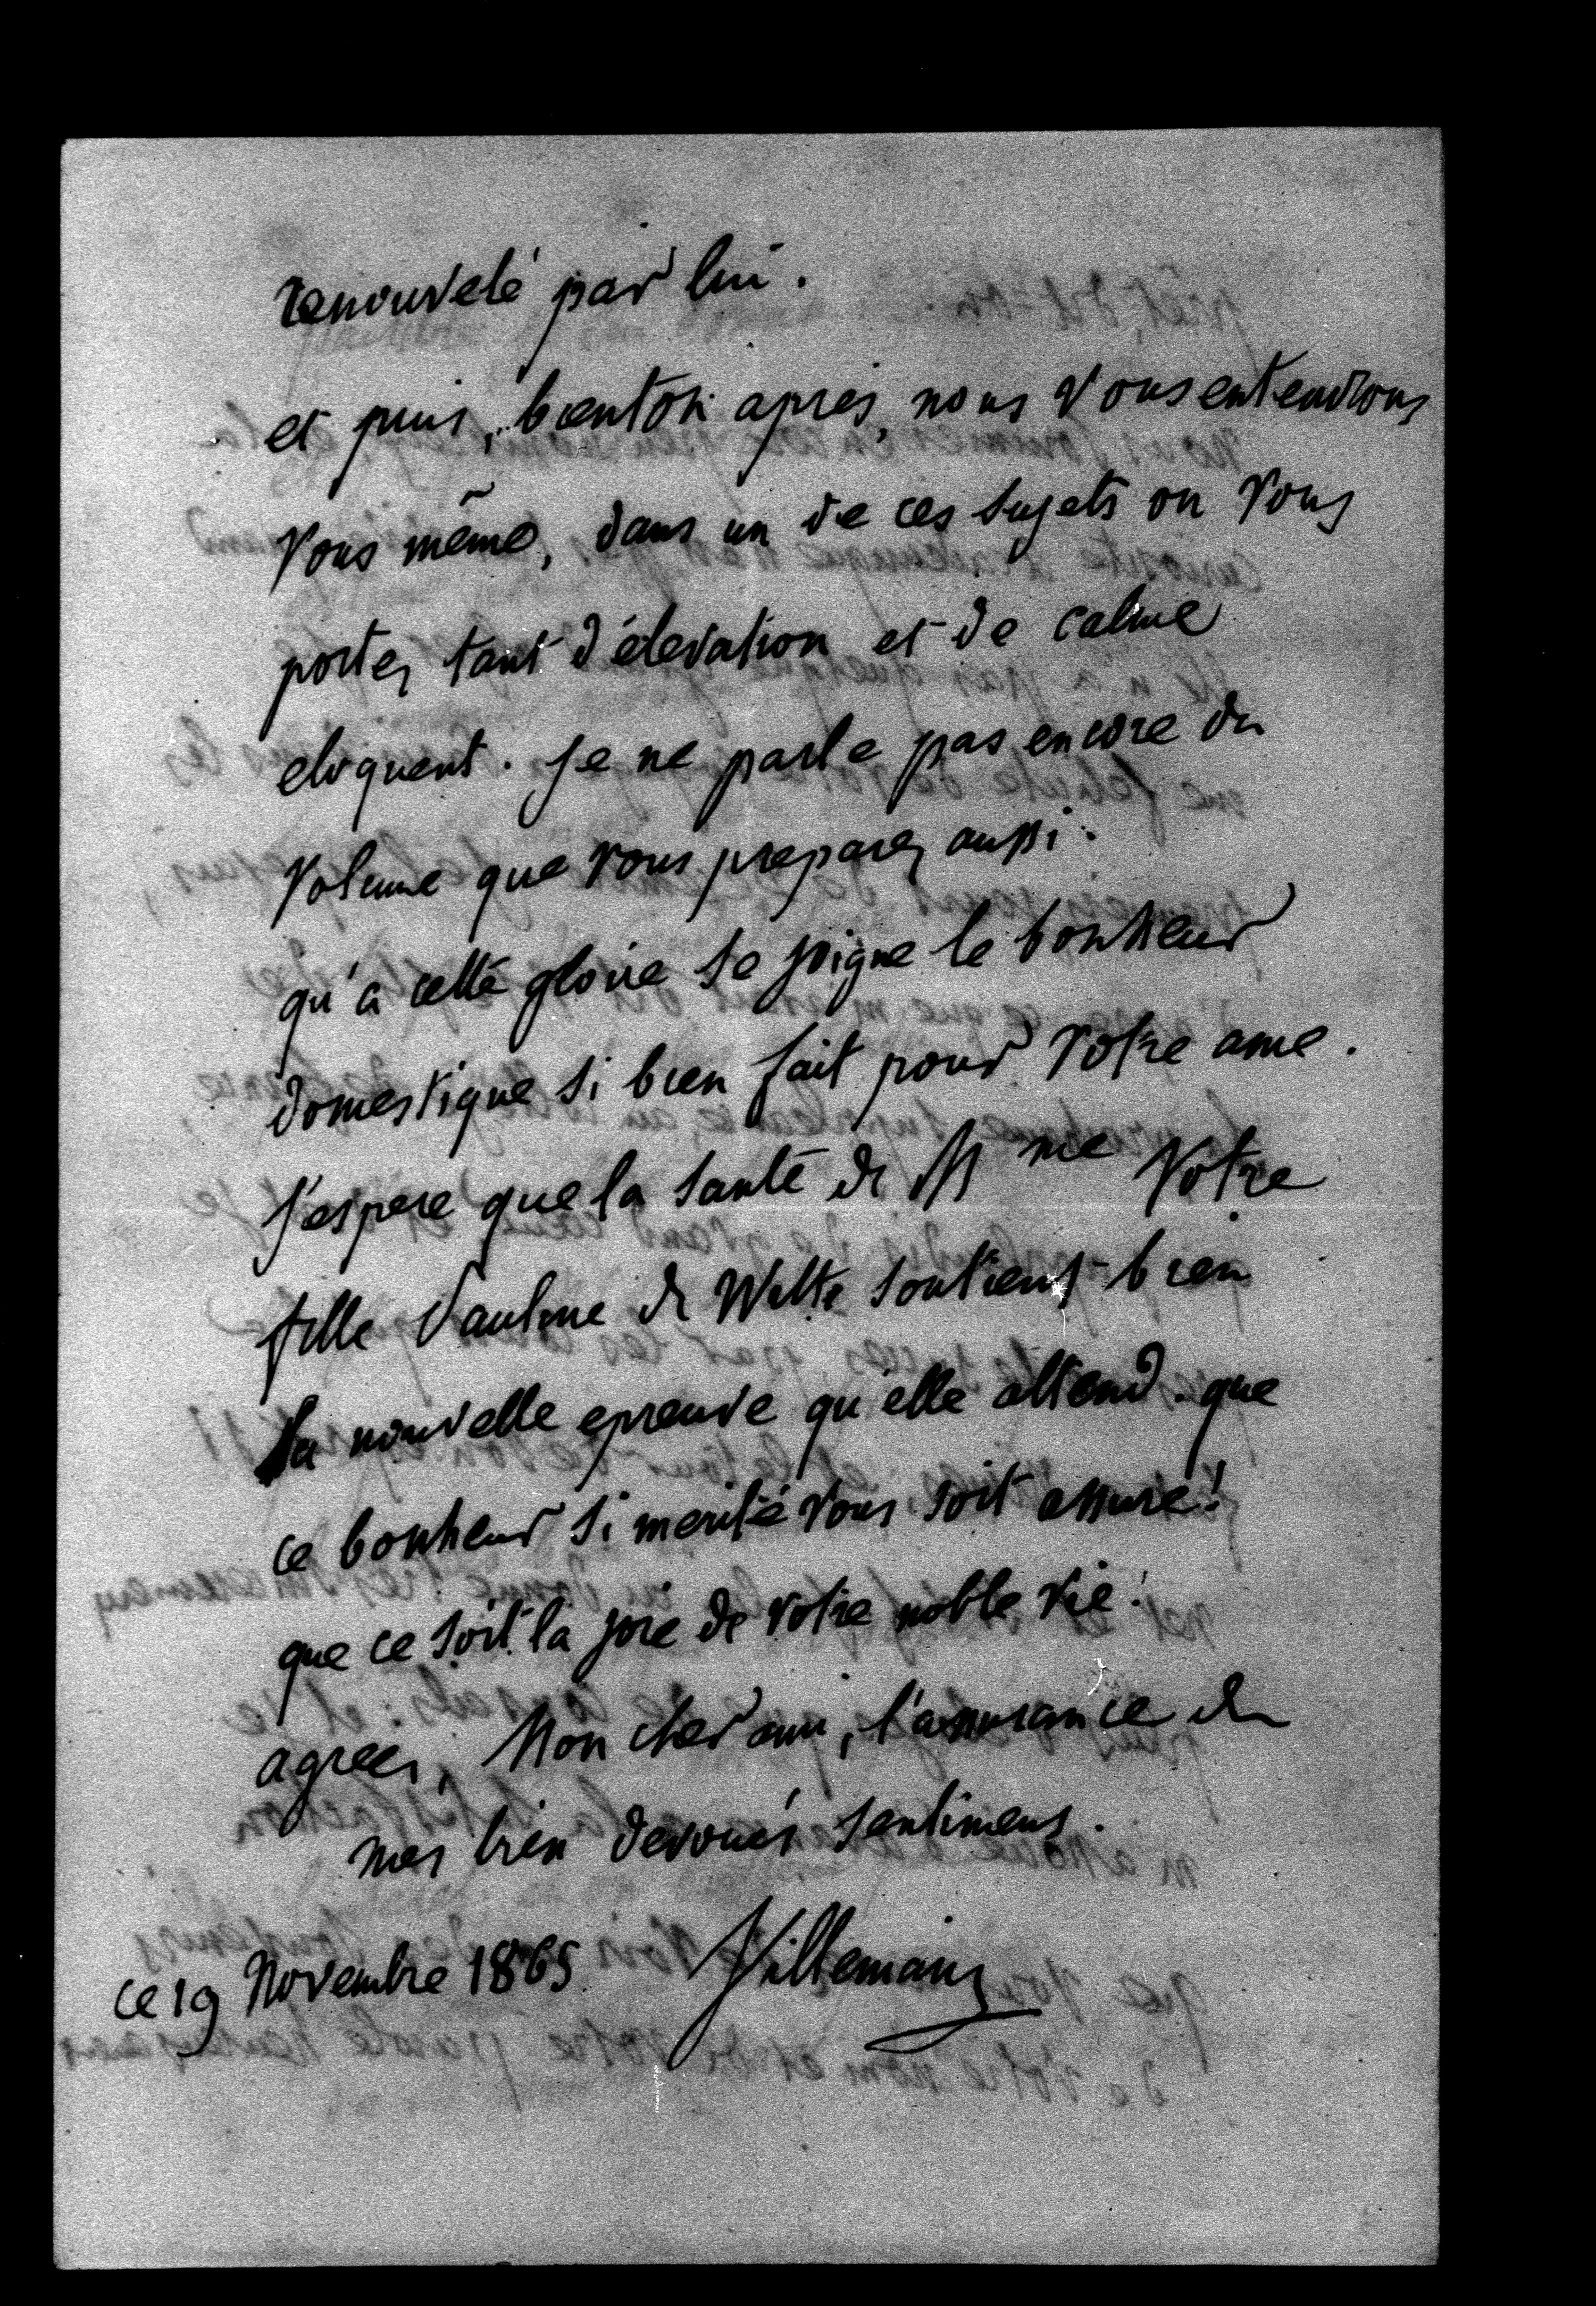 renouvelé par lui.
et puis, bientôt après, nous vous entendrons
vous même, dans un de ces sujets ou vous
portez tant d'élevation et de calme
eloquent. je ne parle pas encore du
volume que vous preparez aussi.
qu'a cette gloire se joigne le bonheur
domestique si bien fait pour votre ame.
j'espere que la santé de Mme votre
fille Pauline de Witte soutient bien
la nouvelle epreuve qu'elle attend. que
ce bonheur si merité vous soit assuré!
que ce soit la joie de votre noble vie!
agreez, Mon cher ami, l'assurance de
mes bien devoués sentimens.
Villemain
ce 19 Novembre 1865